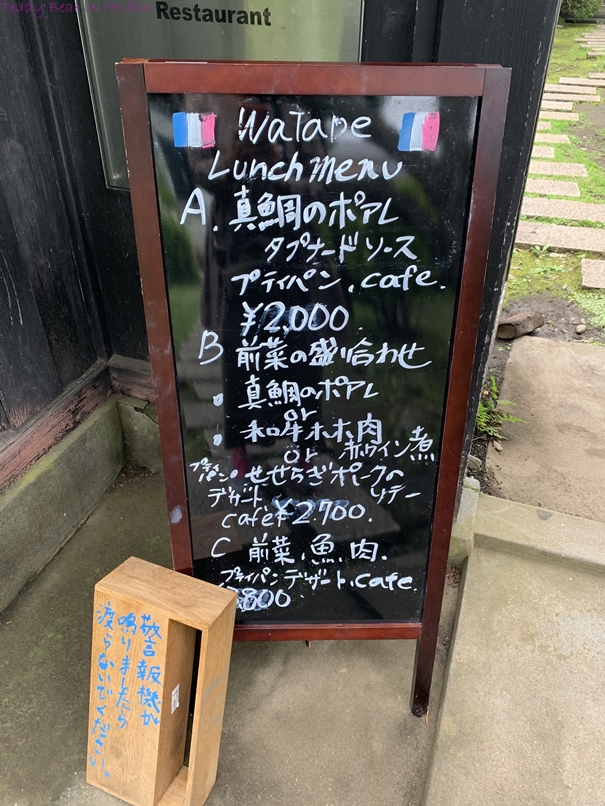 Teddy Bear
Restaurant
Watabe
Lunch menu
A. 真鯛のポアレ
タプナードソース
プティパン、cafe.
¥2,000
B 前菜の盛り合わせ
・真鯛のポアレ
or
・和牛ホホ肉
赤ワイン煮
or
プティパン せせらぎポークの
デザート ソテー
cafe ¥2.700.
C 前菜、魚、肉、
プティパン デザート、cafe.
800
警報機が
鳴りましたら
渡らないでください。